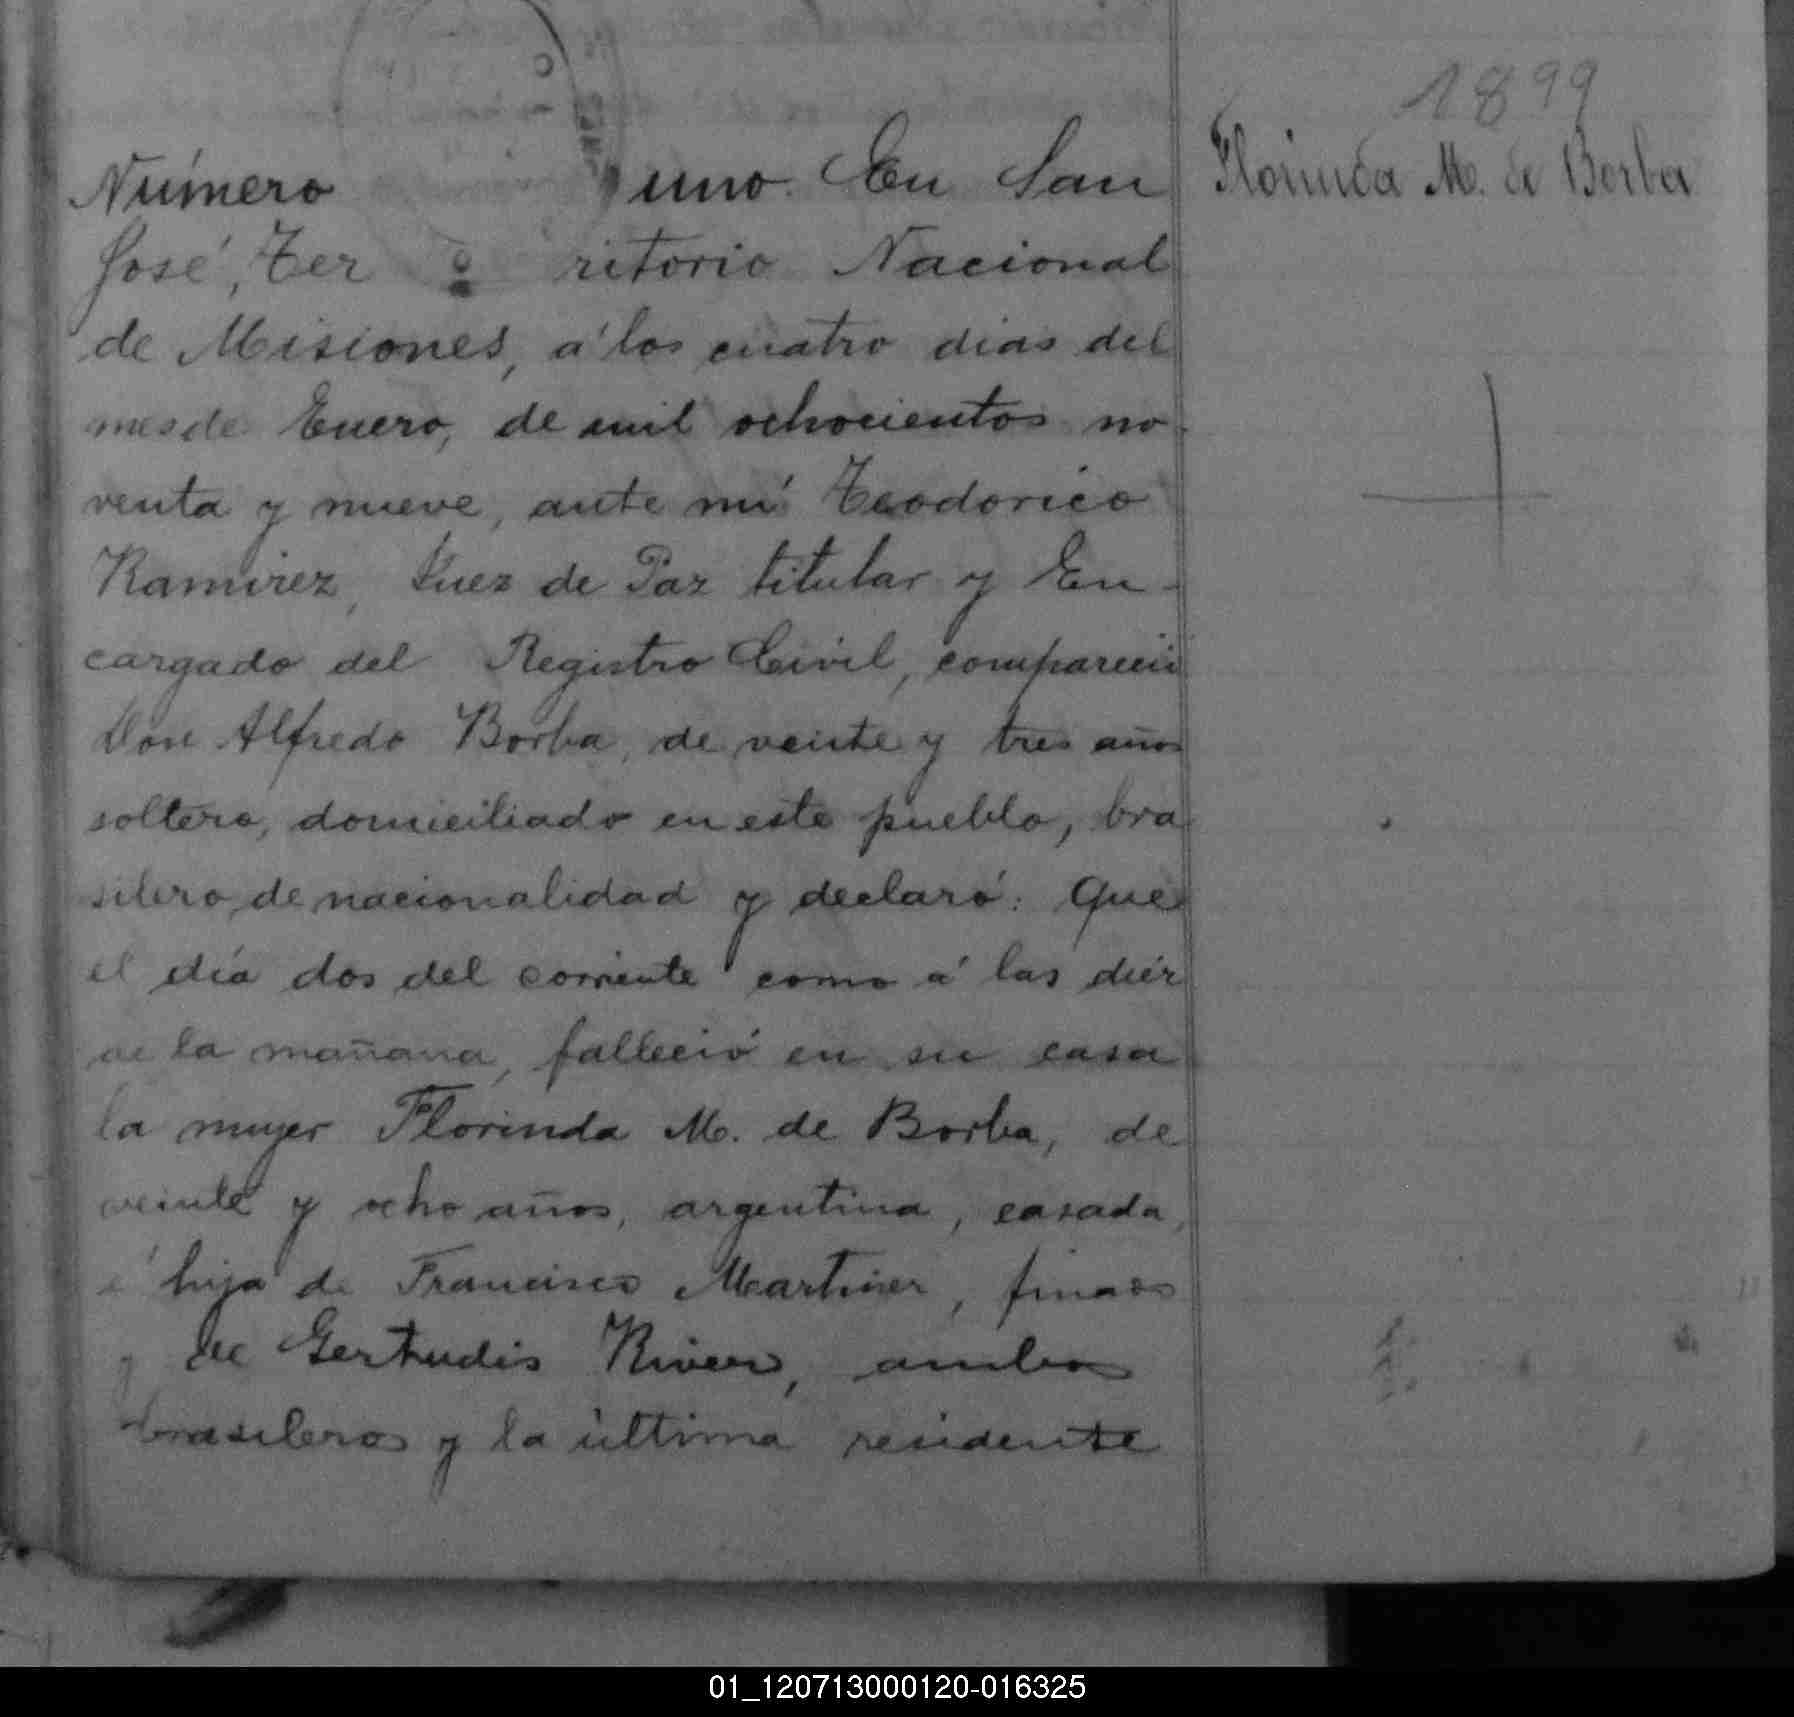 1899
Florinda M. de Borba
Número uno. En San
José, Ter ritorio Nacional
de Misiones, á los cuatro dias del
mes de Enero, de mil ochocientos no-
venta y nueve, ante mí Teodorico
Ramirez, Juez de Paz titular y En-
cargado del Registro Civil, compareció
Don Alfredo Borba, de veinte y tres años
soltero, domiciliado en este pueblo, bra
silero, de nacionalidad y declaró: Que
el día dos del corriente como á las diéz
de la mañana, falleció en su casa
la mujer Florinda M. de Borba, de
veinte y ocho años, argentina, casada,
é hija de Francisco Martinez, finado
y de Gertrudis River, ambos
brasileros y la última residente
01_120713000120-016325